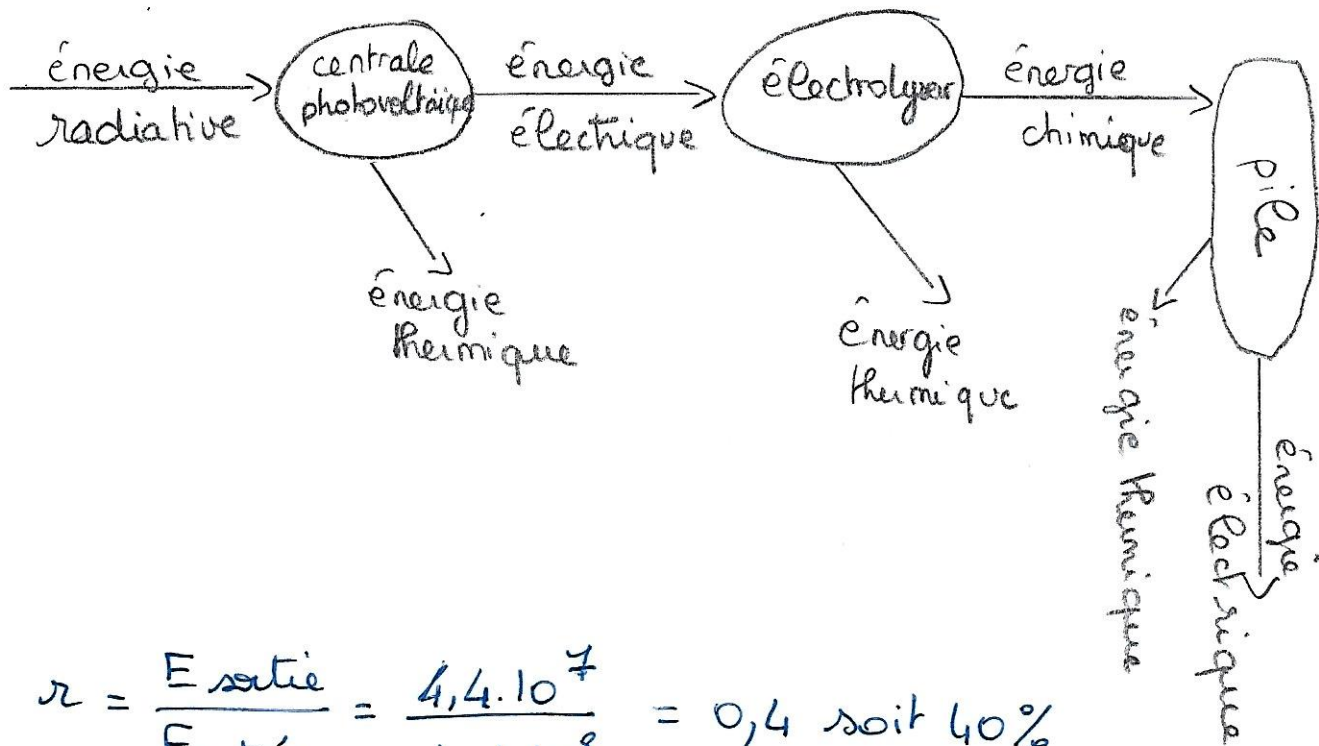 énergie
radiative
centrale
photovoltaïque
énergie
électrique
électrolyseur
énergie
chimique
pile
énergie
thermique
énergie
thermique
énergie thermique
énergie
électrique
r = E sortie = 4,4.10^7 = 0,4 soit 40%